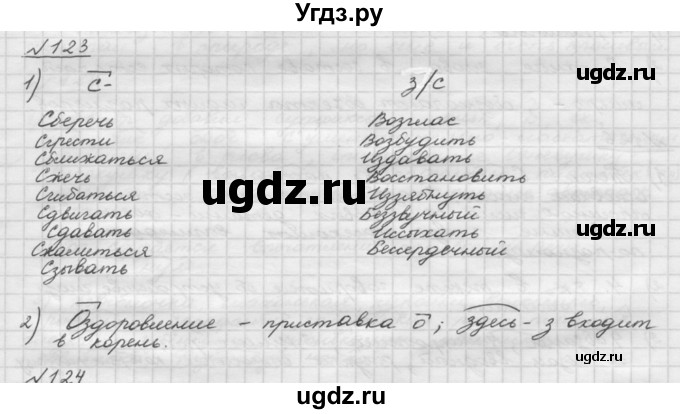 Угдз.ру
№123
1) с- з/с
Сберечь Возглас
Сгрести Возбудить
Сближаться Издавать
Сжечь Восстановить
Сгибаться Изябнуть
Сдвигать Беззвучный
Сдавать Иссыхать
Сжалиться Бессердечный
Сзывать
2) Оздоровление - приставка о; здесь - з входит
в корень.
№124
ugdz.ru
ugdz.ru
ugdz.ru
ugdz.ru
ugdz.ru